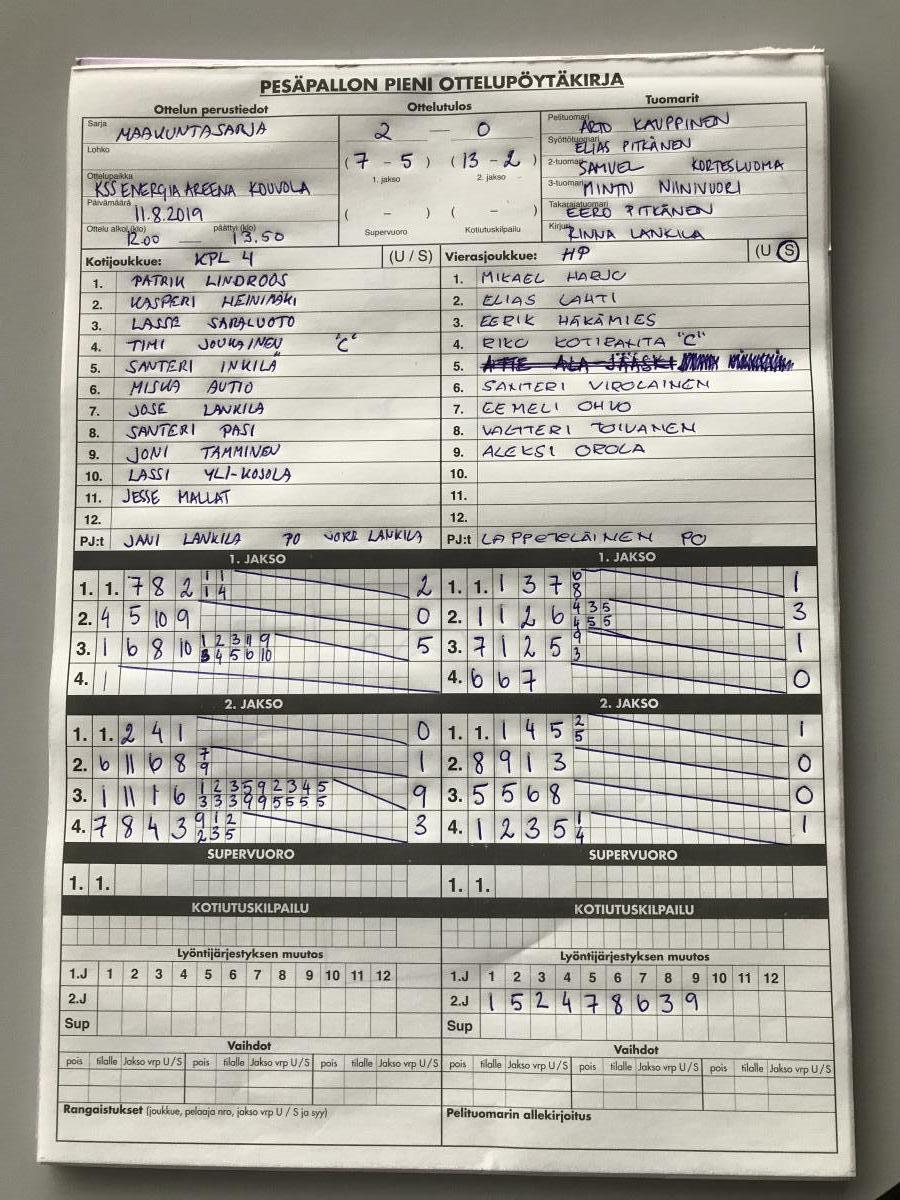 PESÄPALLON PIENI OTTELUPÖYTÄKIRJA
Ottelun perustiedot
Sarja MAAKUNTASARJA
Lohko
Ottelupaikka
KSS ENERGIA AREENA KOUVOLA
Päivämäärä
11.8.2019
Ottelu alkoi (klo) päättyi (klo)
12.00 — 13.50
Ottelutulos
2 — 0
(7 - 5) (13 - 2)
1. jakso 2. jakso
( - ) ( - )
Supervuoro Kotiutuskilpailu
Tuomarit
Pelituomari ARTO KAUPPINEN
Syöttötuomari ELIAS PITKÄNEN
2-tuomari SAMUEL KORTESLUOMA
3-tuomari MINTTU NIINIVUORI
Takarajatuomari EERO PITKÄNEN
Kirjuri LANKILA
Kotijoukkue: KPL 4 (U / S)
1. PATRIK LINDROOS
2. KASPERI HEINIMÄKI
3. LASSE SARALUOTO
4. TIMI JOUKAINEN "C"
5. SANTERI INKILÄ
6. MISKA AUTIO
7. JOSE LANKILA
8. SANTERI PASI
9. JONI TAMMINEN
10. LASSI YLI-KOJOLA
11. JESSE MALLAT
12.
PJ:t JANI LANKILA PO LANKILA
Vierasjoukkue: HP (U S)
1. MIKAEL HARJU
2. ELIAS LAHTI
3. EERIK HÄKÄMIES
4. RIKU KOTIRANTA "C"
5. ATTE ALA-JÄÄSKI
6. SANTERI VIROLAINEN
7. EEMELI OHVO
8. VALTTERI TOIVANEN
9. ALEKSI OROLA
10.
11.
12.
PJ:t LAPPETELÄINEN PO
1. JAKSO
1. 1. 7 8 2 1 1 2
1 4
2. 4 5 10 9 0
3. 1 6 8 10 1 2 3 11 9 5
3 4 5 6 10
4. 1
1. JAKSO
1. 1. 1 3 7 6 1
8
2. 1 1 2 6 4 3 5 3
4 5 5
3. 7 1 2 5 9 1
3
4. 6 6 7 0
2. JAKSO
1. 1. 2 4 1 0
2. 6 11 6 8 7 1
9
3. 1 11 1 6 1 2 3 5 9 2 3 4 5 9
3 3 3 9 9 5 5 5 5
4. 7 8 4 3 9 1 2 3
2 3 5
2. JAKSO
1. 1. 1 4 5 2 1
5
2. 8 9 1 3 0
3. 5 5 6 8 0
4. 1 2 3 5 1 1
4
SUPERVUORO
1. 1.
SUPERVUORO
1. 1.
KOTIUTUSKILPAILU
KOTIUTUSKILPAILU
Lyöntijärjestyksen muutos
1.J 1 2 3 4 5 6 7 8 9 10 11 12
2.J
Sup
Lyöntijärjestyksen muutos
1.J 1 2 3 4 5 6 7 8 9 10 11 12
2.J 1 5 2 4 7 8 6 3 9
Sup
Vaihdot
pois tilalle Jakso vrp U/S pois tilalle Jakso vrp U/S pois tilalle Jakso vrp U/S
Vaihdot
pois tilalle Jakso vrp U/S pois tilalle Jakso vrp U/S pois tilalle Jakso vrp U/S
Rangaistukset (joukkue, pelaaja nro, jakso vrp U / S ja syy)
Pelituomarin allekirjoitus